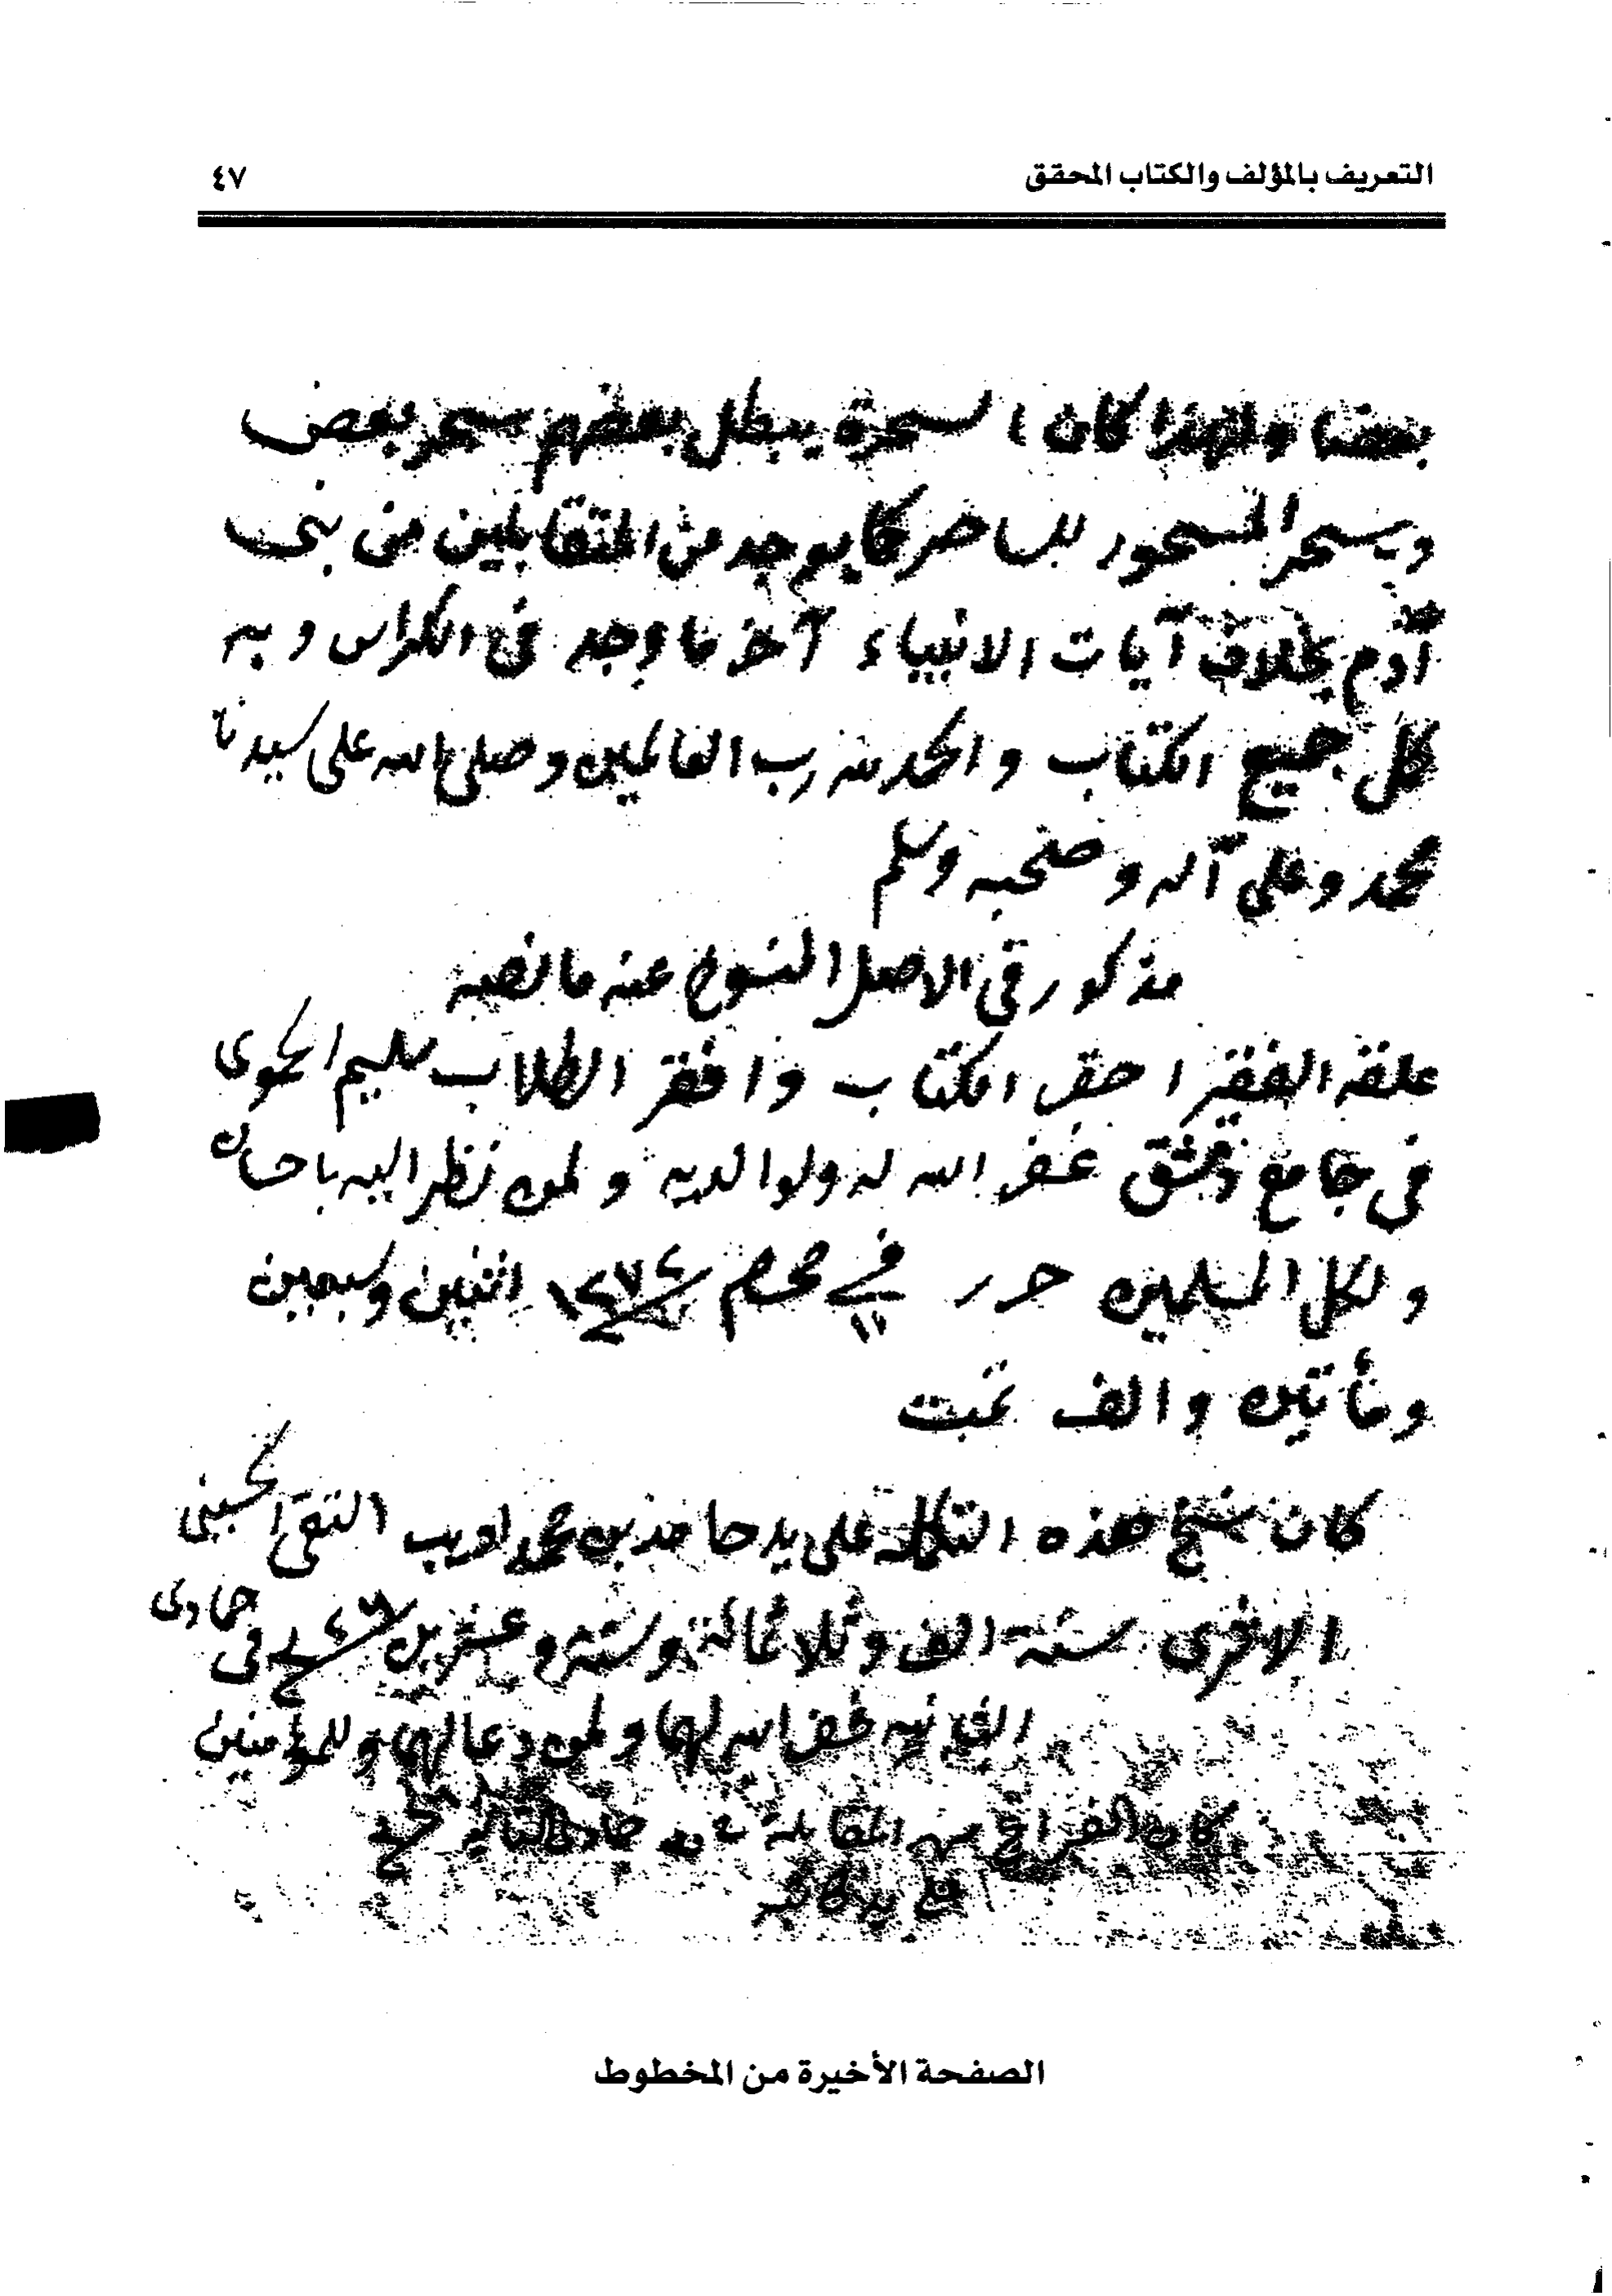 التعريف بالمؤلف والكتاب المحقق ٤٧
بعضا ولهذا كان السحرة يبطل بعضهم سحر بعض
ويسحر المسحور للساحر كما يوجد من المتقابلين من بنى
آدم بخلاف آيات الانبياء آخر ما وجد فى الكراس وبه
كمل جميع الكتاب والحمد لله رب العالمين وصلى الله على سيدنا
محمد وعلى آله وصحبه وسلم
مذكور فى الاصل المنسوخ عنه ما نصه
علقه الفقير احقر الكتاب وافقر الطلاب سليم الحموى
فى جامع دمشق غفر الله له ولوالديه ولمن نظر اليه باحسان
ولكل المسلمين حرر في ١١ محرم اثنين وسبعين
ومأتين والف تمت
كان نسخ هذه التكملة على يد حامد بن محمد اديب التقى الحسينى
فى جمادى الاخرى سنة الف وثلاثمائة وستة وعشرين
الثانيه غفر الله لهما ولمن دعا لهما وللمؤمنين
كان الفراغ من المقابلة جمادى الثانيه
على يد كاتبه
الصفحة الأخيرة من المخطوط